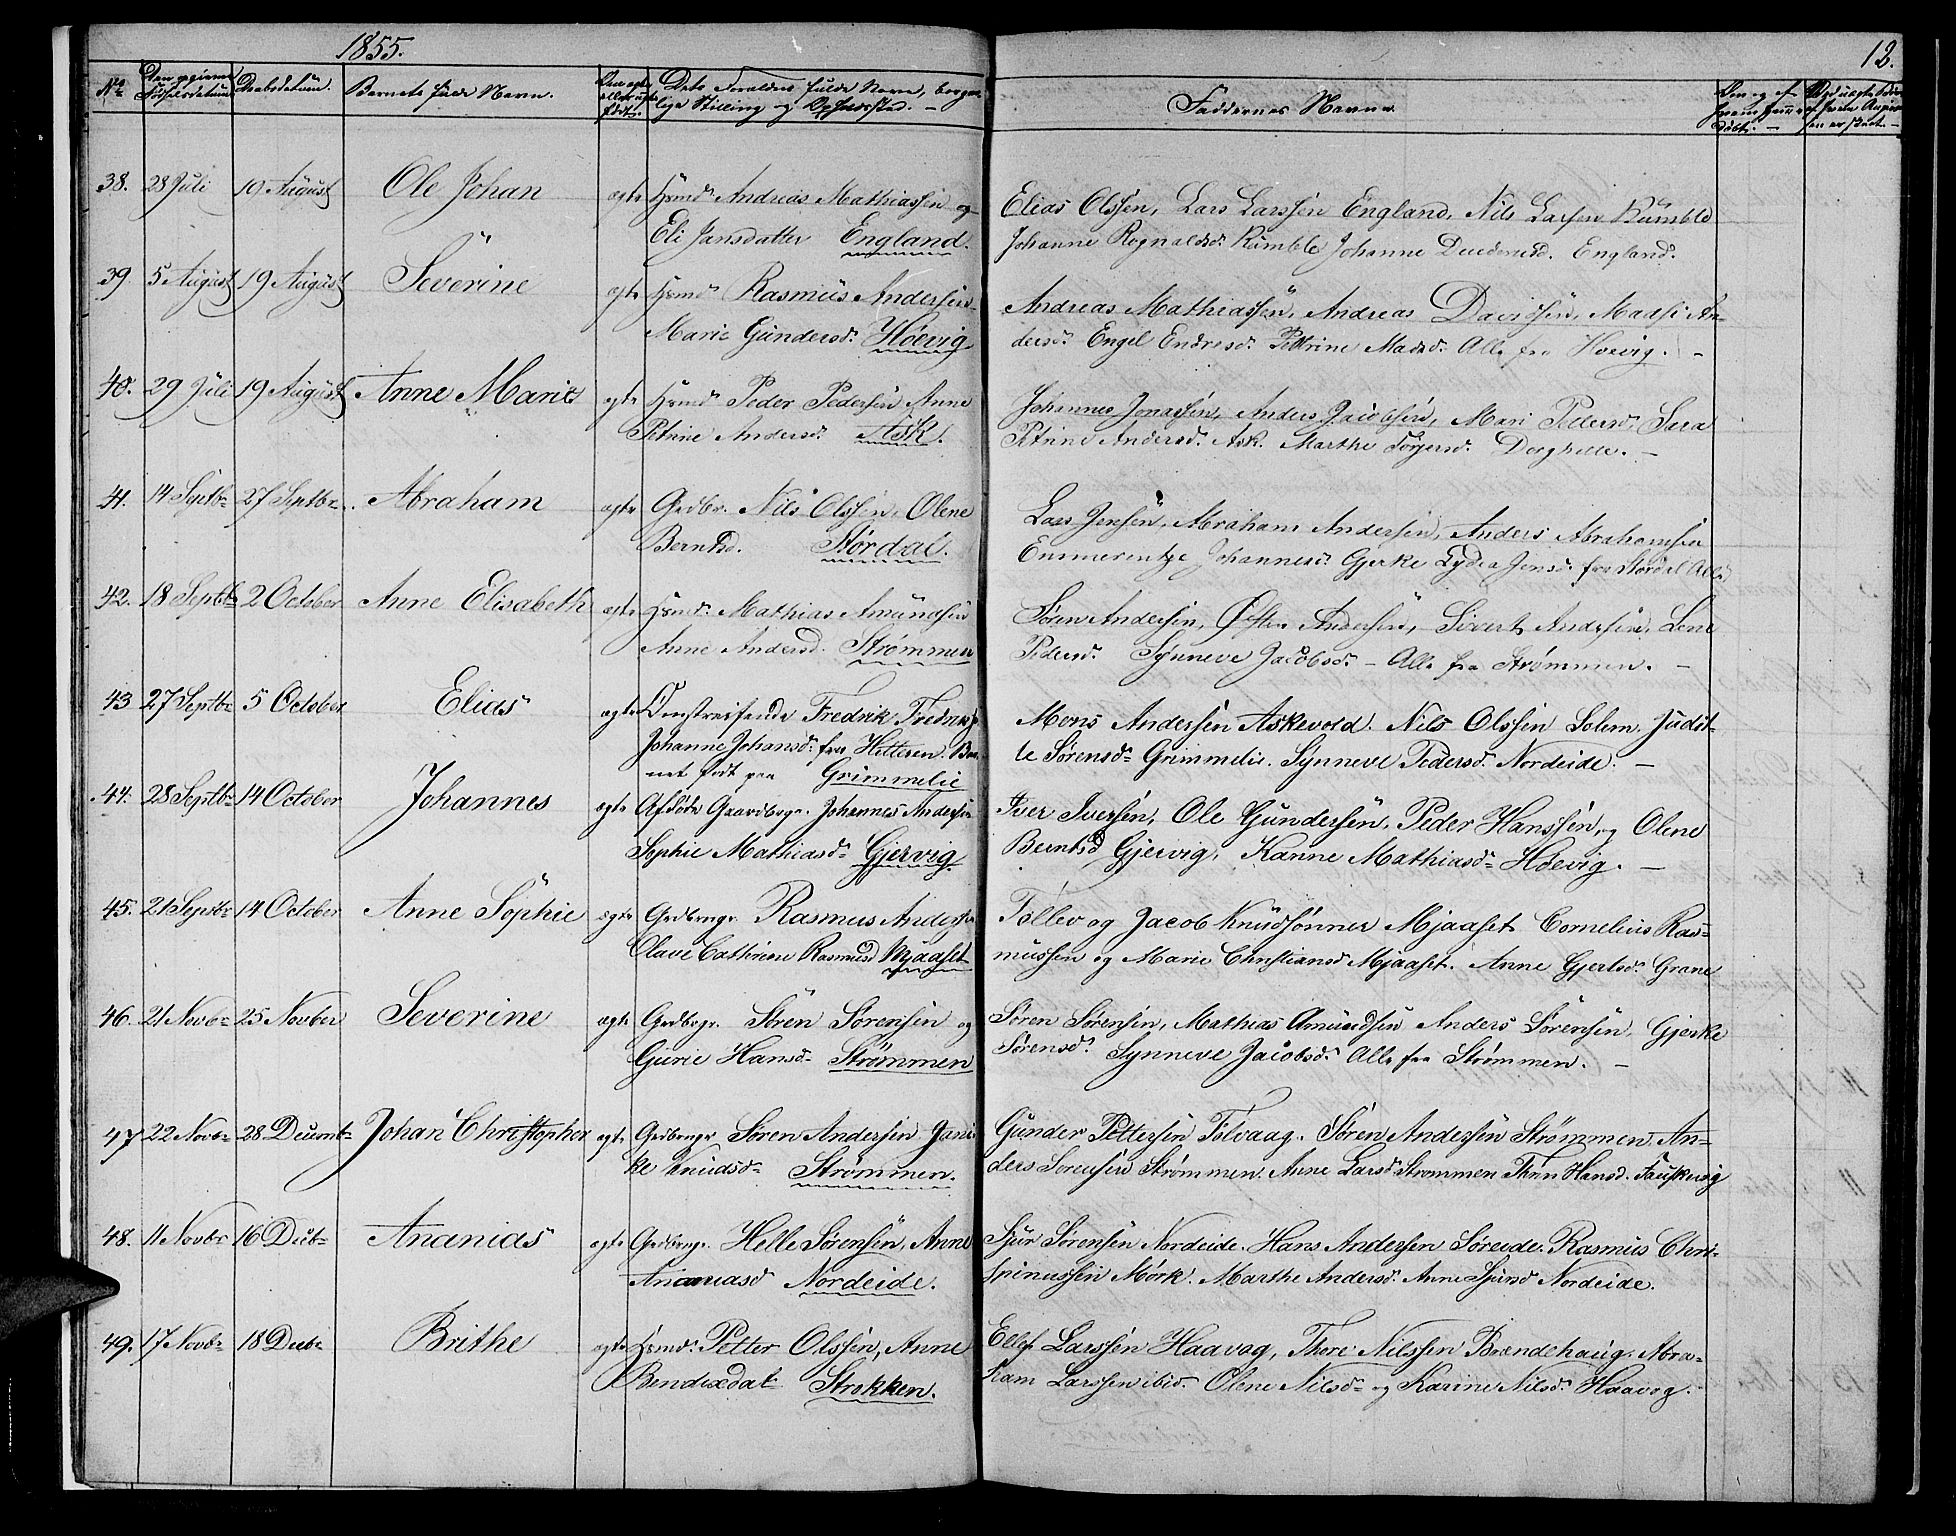 1855.
12.
No Den opgivne Fødselsdatum. Daabsdatum. Barnets fulde Navn. Dets Forældres fulde Navn, borger-
lige Stilling og Opholdssted. —
Faddernes Navne
38. 28 Juli 19 August Ole Johan ægte Hsmd Andreas Mathiassen og
Eli Jansdatter England.
Elias Olssen, Lars Larssen England, Nils Larsen Rumble
Johanne Rognaldsd. Rumble Johanne England.
39. 5 August 19 August Severine ægte Hsmd Rasmus Andersen
Marie Gundersd. Høevig
Andreas Mathiassen, Andreas Davidsen, Mads An-
dersd. Engel Endresd. Pettrine Madsd. Alle fra Høevig. —
40. 29 Juli 19 August Anne Marie ægte Hsmd Peder Pedersen Anne
Petrine Andersd. Ask.
Johannes Jonassen, Anders Jacobsen, Mari Pedersd. Sara
Petrine Andersd. Ask. Marthe Torgersd. —
41. 14 Septbr 27 Septbr. Abraham ægte Grdbr. Nils Olssen, Olene
Berntsd. Stordal.
Lars Jensen, Abraham Andersen, Anders Abrahamsen
Emmerentze Johannesd. Gjerke Lydea Jensd. fra Stordal Alle
42. 18 Septb 2 October Anne Elisabeth ægte Hsmd. Mathias Amundsen
Anne Andersd. Strømmen
Søren Andersen, Andersen, Sivert Andersen, Lene
Pedersd. Synneve Jacobsd. — Alle fra Strømmen. —
43 27 Septbr 5 October Elias ægte Omstreifende Fredrik
Johanne Johansd. fra Hitteren. Bar-
net født paa Grimmelie
Mons Andersen Askevold. Nils Olssen Solem. Judit-
te Sørensd. Grimmelie. Synneve Pedersd. Nordeide. —
44. 28 Septbr 14 October Johannes ægte Afdøde Gaardbrgr. Johannes Andersen
Sophie Mathiasd. Gjervig.
Iver Iversen, Ole Gundersen, Peder Hanssen, og Olene
Berntsd Gjervig, Hanne Mathiasd. Høevig. —
45. 21 Septbr 14 October Anne Sophie ægte Grdbrugr Rasmus Anders
Olave Cathrine Rasmusd Mjaaset
Tollev og Jacob Knudsønner Mjaaset Cornelius Ras-
mussen og Marie Christiansd Mjaaset. Anne Gjertsd. Grane
46. 21 Novbr 25 Novber Severine ægte Grdbrgr. Søren Sørensen og
Gurie Hansd. Strømmen
Søren Sørensen, Mathias Amundsen Anders Sørensen, Gjerke
Sørensd. Synneve Jacobsd. Alle fra Strømmen. —
47 22 Novbr 28 Decembr Johan Christopher ægte Grdbrugr Søren Andersen Jani-
ke Knudsd. Strømmen.
Gunder Pettersen Tolvaag. Søren Andersen Strømmen. An-
ders Sørensen Strømmen. Anne Larsd. Strømmen Hansd. Fauskevig
48. 11 Novbr 16 Decbr Ananias ægte Grdbrugr. Helle Sørensen, Anne
Ananiasd Nordeide.
Sjur Sørensen Nordeide. Hans Andersen Søreide. Rasmus Chri-
spinussen Mørk. Marthe Andersd. Anne Sjursd Nordeide.
49. 17 Novbr 18 Decbr Brithe ægte Hsmd. Petter Olssen, Anne
Bendixdat. Stokken.
Ellef Larssen Haavag, Thore Nilssen Brendehaug. Abra-
ham Larssen ibid. Olene Nilsd. og Karine Nilsd. Haavog.